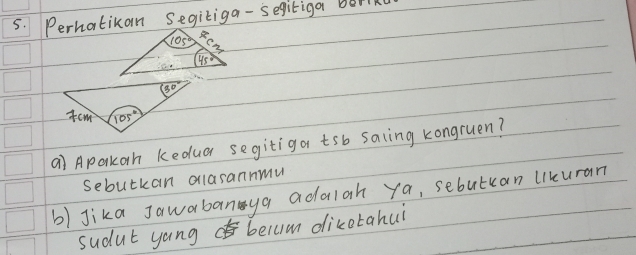 5. Perhatikan Segitiga - segitiga
105° 7cm
45°
30°
7cm 105°
a) Apakah kedua segitiga tsb saling kongruen?
Sebutkan alasanmmu
b) Jika Jawabannya adalah Ya, sebutkan Ukuran
sudut yang belum diketahui